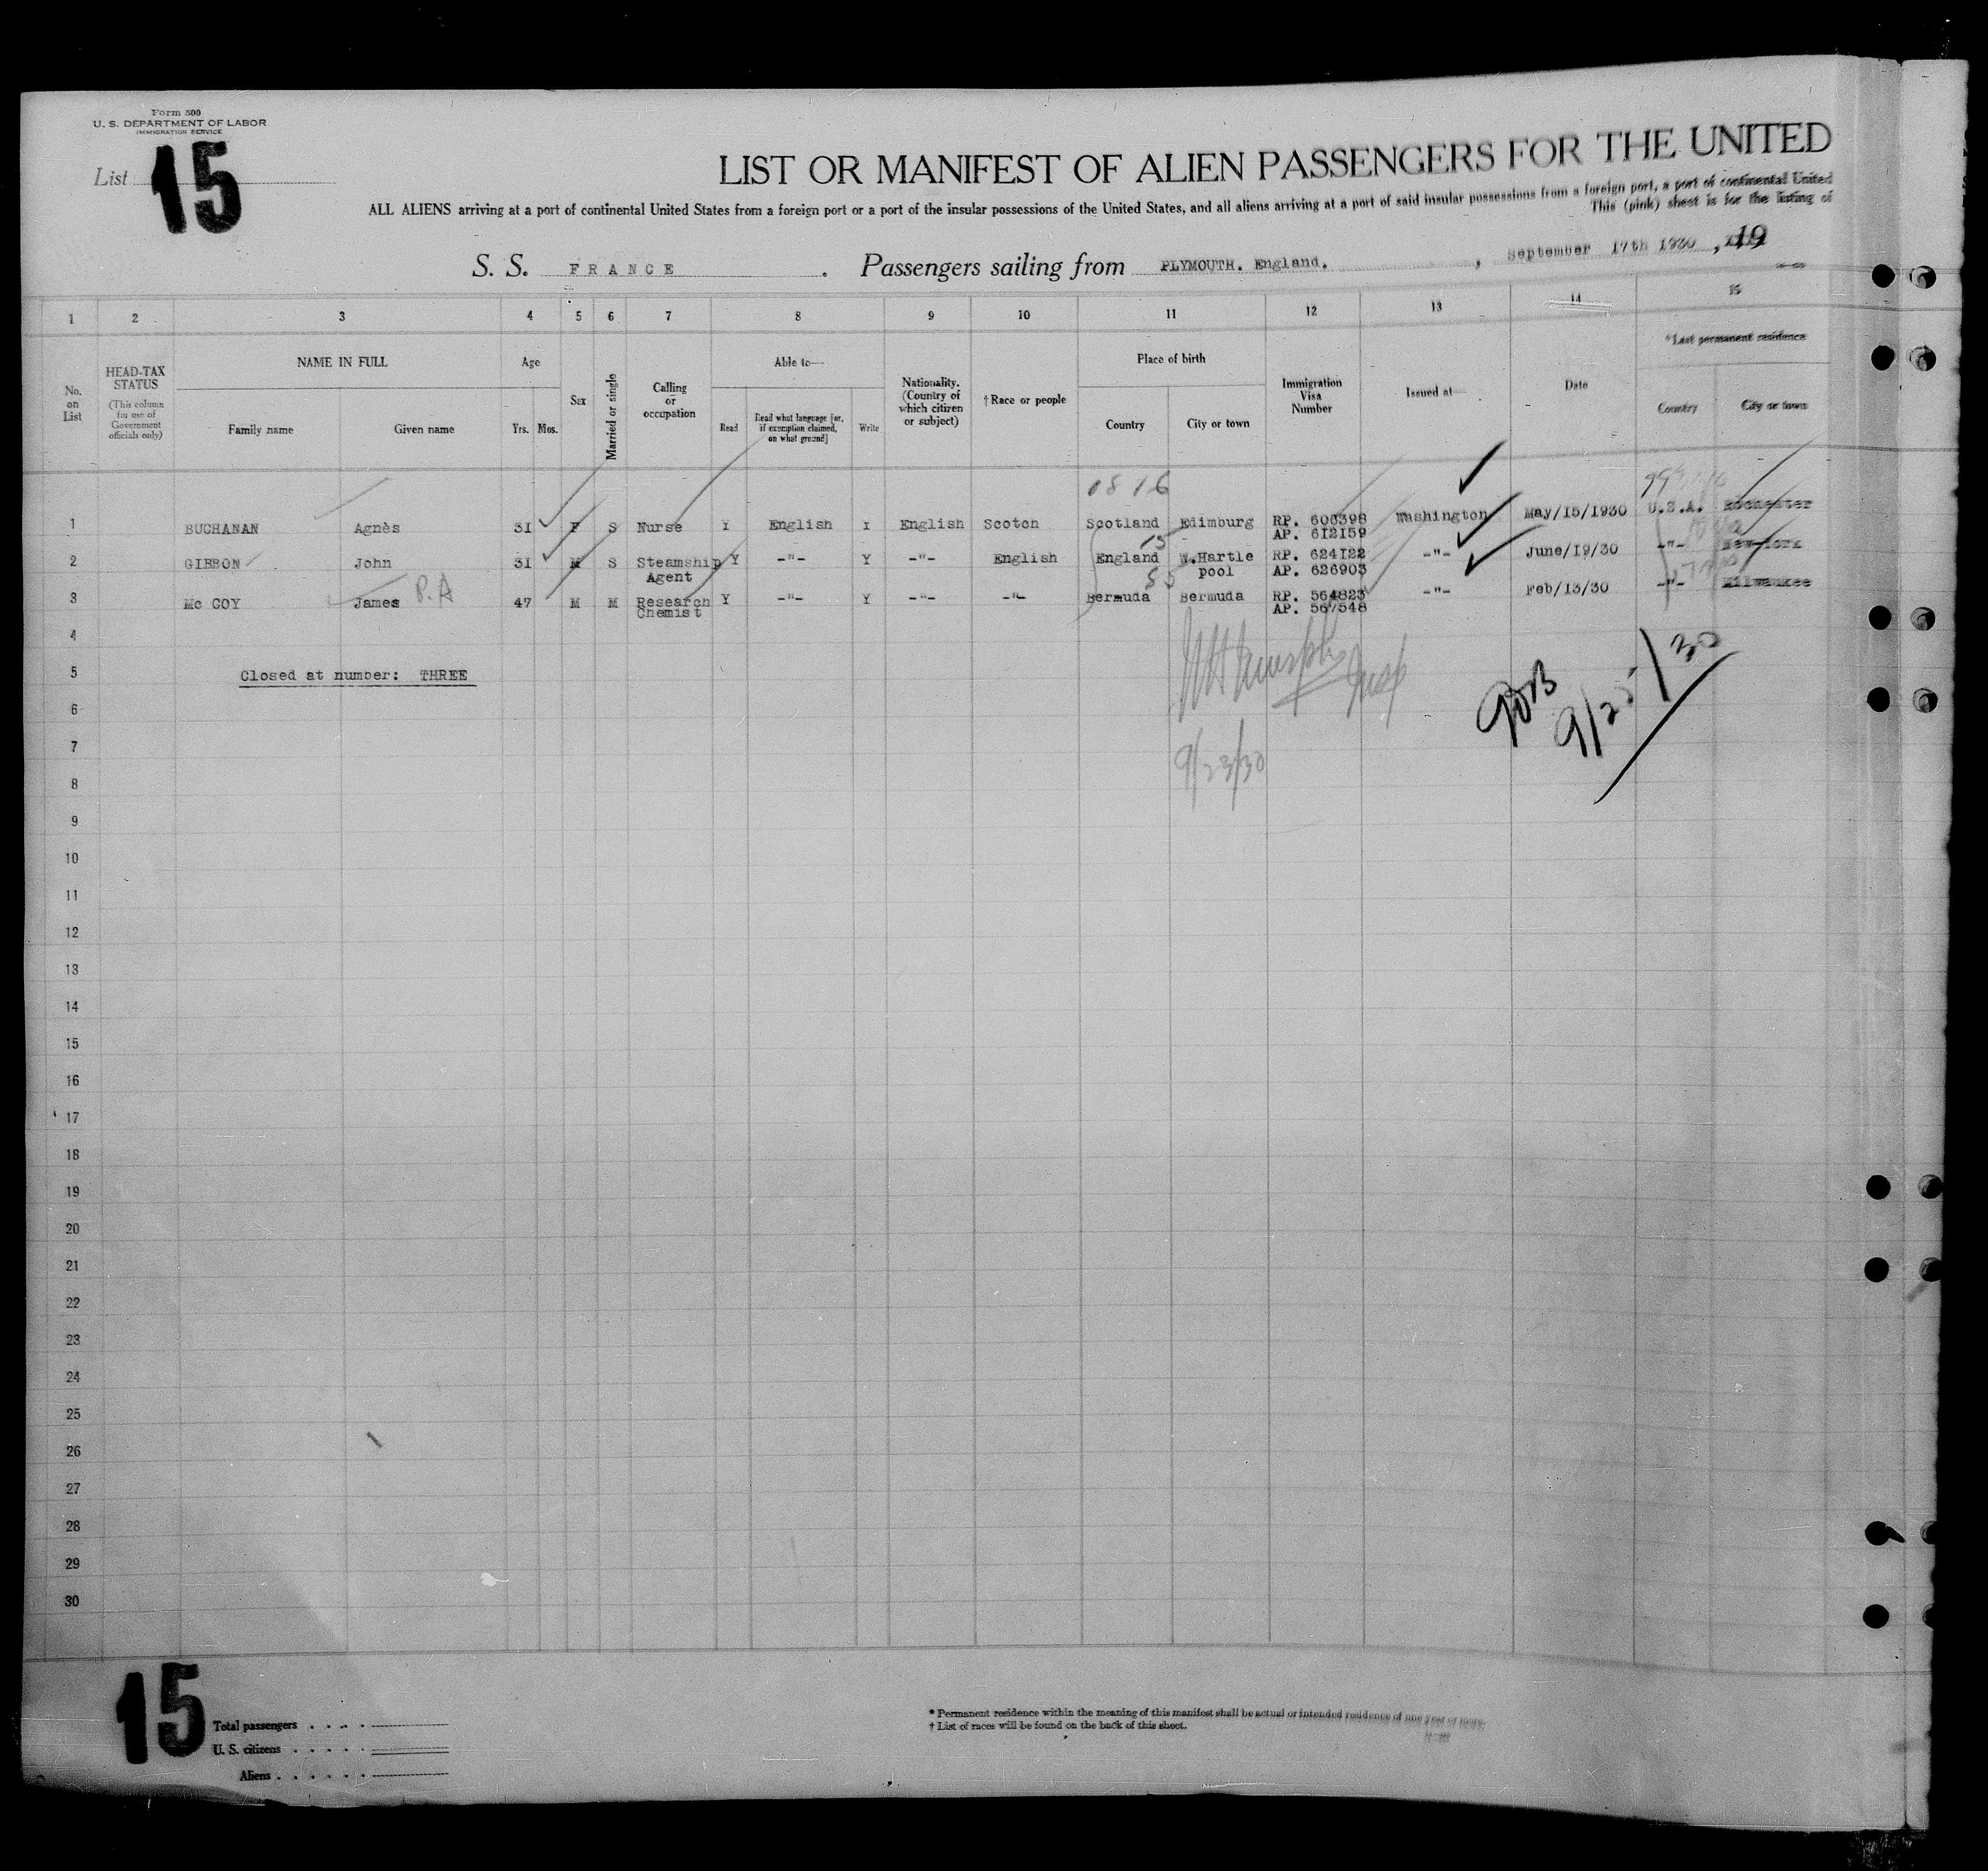 Form 500
U. S. DEPARTMENT OF LABOR
IMMIGRATION SERVICE
List 15
LIST OR MANIFEST OF ALIEN PASSENGERS FOR THE UNITED
ALL ALIENS arriving at a port of continental United States from a foreign port or a port of the insular possessions of the United States, and all aliens arriving at a port of said insular possessions from a foreign port, a port of continental United
This (pink) sheet is for the listing of
S. S. FRANCE . Passengers sailing from PLYMOUTH. England. , September 17th 1930 , 19
1 2 3 4 5 6 7 8 9 10 11 12 13 14 15
No. on List
HEAD-TAX STATUS
(This column for use of Government officials only)
NAME IN FULL
Family name Given name
Age
Yrs. Mos.
Sex
Married or single
Calling or occupation
Able to—
Read
Read what language [or, if exemption claimed, on what ground]
Write
Nationality. (Country of which citizen or subject)
† Race or people
Place of birth
Country City or town
Immigration Visa Number
Issued at—
Date
*Last permanent residence
Country City or town
0816
1 BUCHANAN Agnès 3I F S Nurse Y English Y English Scotch Scotland Edimburg RP. 606398 Washington May/15/1930 U.S.A. Rochester
AP. 6I2I59
15
2 GIBBON John 3I M S Steamship Y -"- Y -"- English England W.Hartle RP. 624I22 -"- June/19/30 -"- New-York
Agent pool AP. 626903
P.A 85
3 Mc COY James 47 M M Research Y -"- Y -"- -"- Bermuda Bermuda RP. 564823 -"- Feb/13/30 -"- Milwaukee
Chemist AP. 567548
4
5 Closed at number: THREE
9/25/30
6
7
9/23/30
8
9
10
11
12
13
14
15
16
17
18
19
20
21
22
23
24
25
26
27
28
29
30
15
Total passengers
U. S. citizens
Aliens
* Permanent residence within the meaning of this manifest shall be actual or intended residence of one year or more.
† List of races will be found on the back of this sheet.